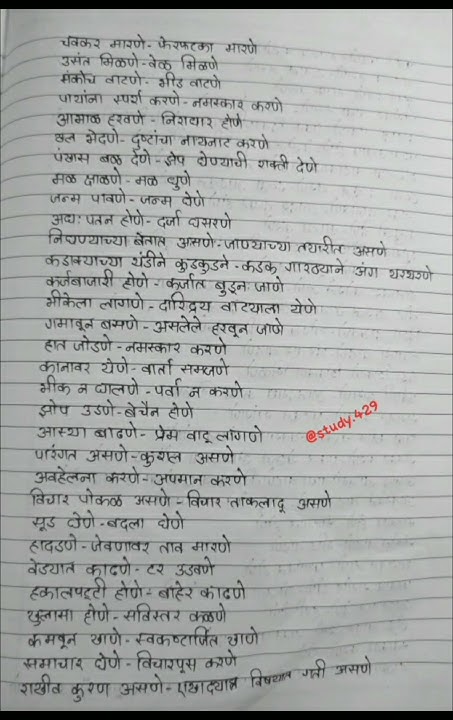 चक्कर मारणे - फेरफटका मारणे
उसंत मिळणे - वेळ मिळणे
संकोच वाटणे - भीड वाटणे
पायांना स्पर्श करणे - नमस्कार करणे
आभाळ हरवणे - निराधार होणे
खल भेदणे - दुष्टांचा नायनाट करणे
पंखास बळ देणे - झेप घेण्याची शक्ती देणे
मळ क्षाळणे - मळ धुणे
जन्म पावणे - जन्म घेणे
अधः पतन होणे - दर्जा घसरणे
निघण्याच्या बेतात असणे - जाण्याच्या तयारीत असणे
कडाक्याच्या थंडीने कुडकुडने - कडक गारठ्याने अंग थरथरणे
कर्जबाजारी होणे - कर्जात बुडून जाणे
भीकेला लागणे - दारिद्र्य वाट्याला येणे
गमावून बसणे - असलेले हरवून जाणे
हात जोडणे - नमस्कार करणे
कानावर येणे - वार्ता समजणे
भीक न घालणे - पर्वा न करणे
झोप उडणे - बेचैन होणे
आस्था वाढणे - प्रेम वाटू लागणे
@study.429
पारंगत असणे - कुशल असणे
अवहेलना करणे - अपमान करणे
विचार पोकळ असणे - विचार ताकलादू असणे
सूड घेणे - बदला घेणे
हादडणे - जेवणावर ताव मारणे
वेड्यात काढणे - टर उडवणे
हकालपट्टी होणे - बाहेर काढणे
खुलासा होणे - सविस्तर कळणे
कमवून खाणे - स्वकष्टार्जित खाणे
समाचार घेणे - विचारपूस करणे
राखीव कुरण असणे - एखाद्याच विषयात गती असणे